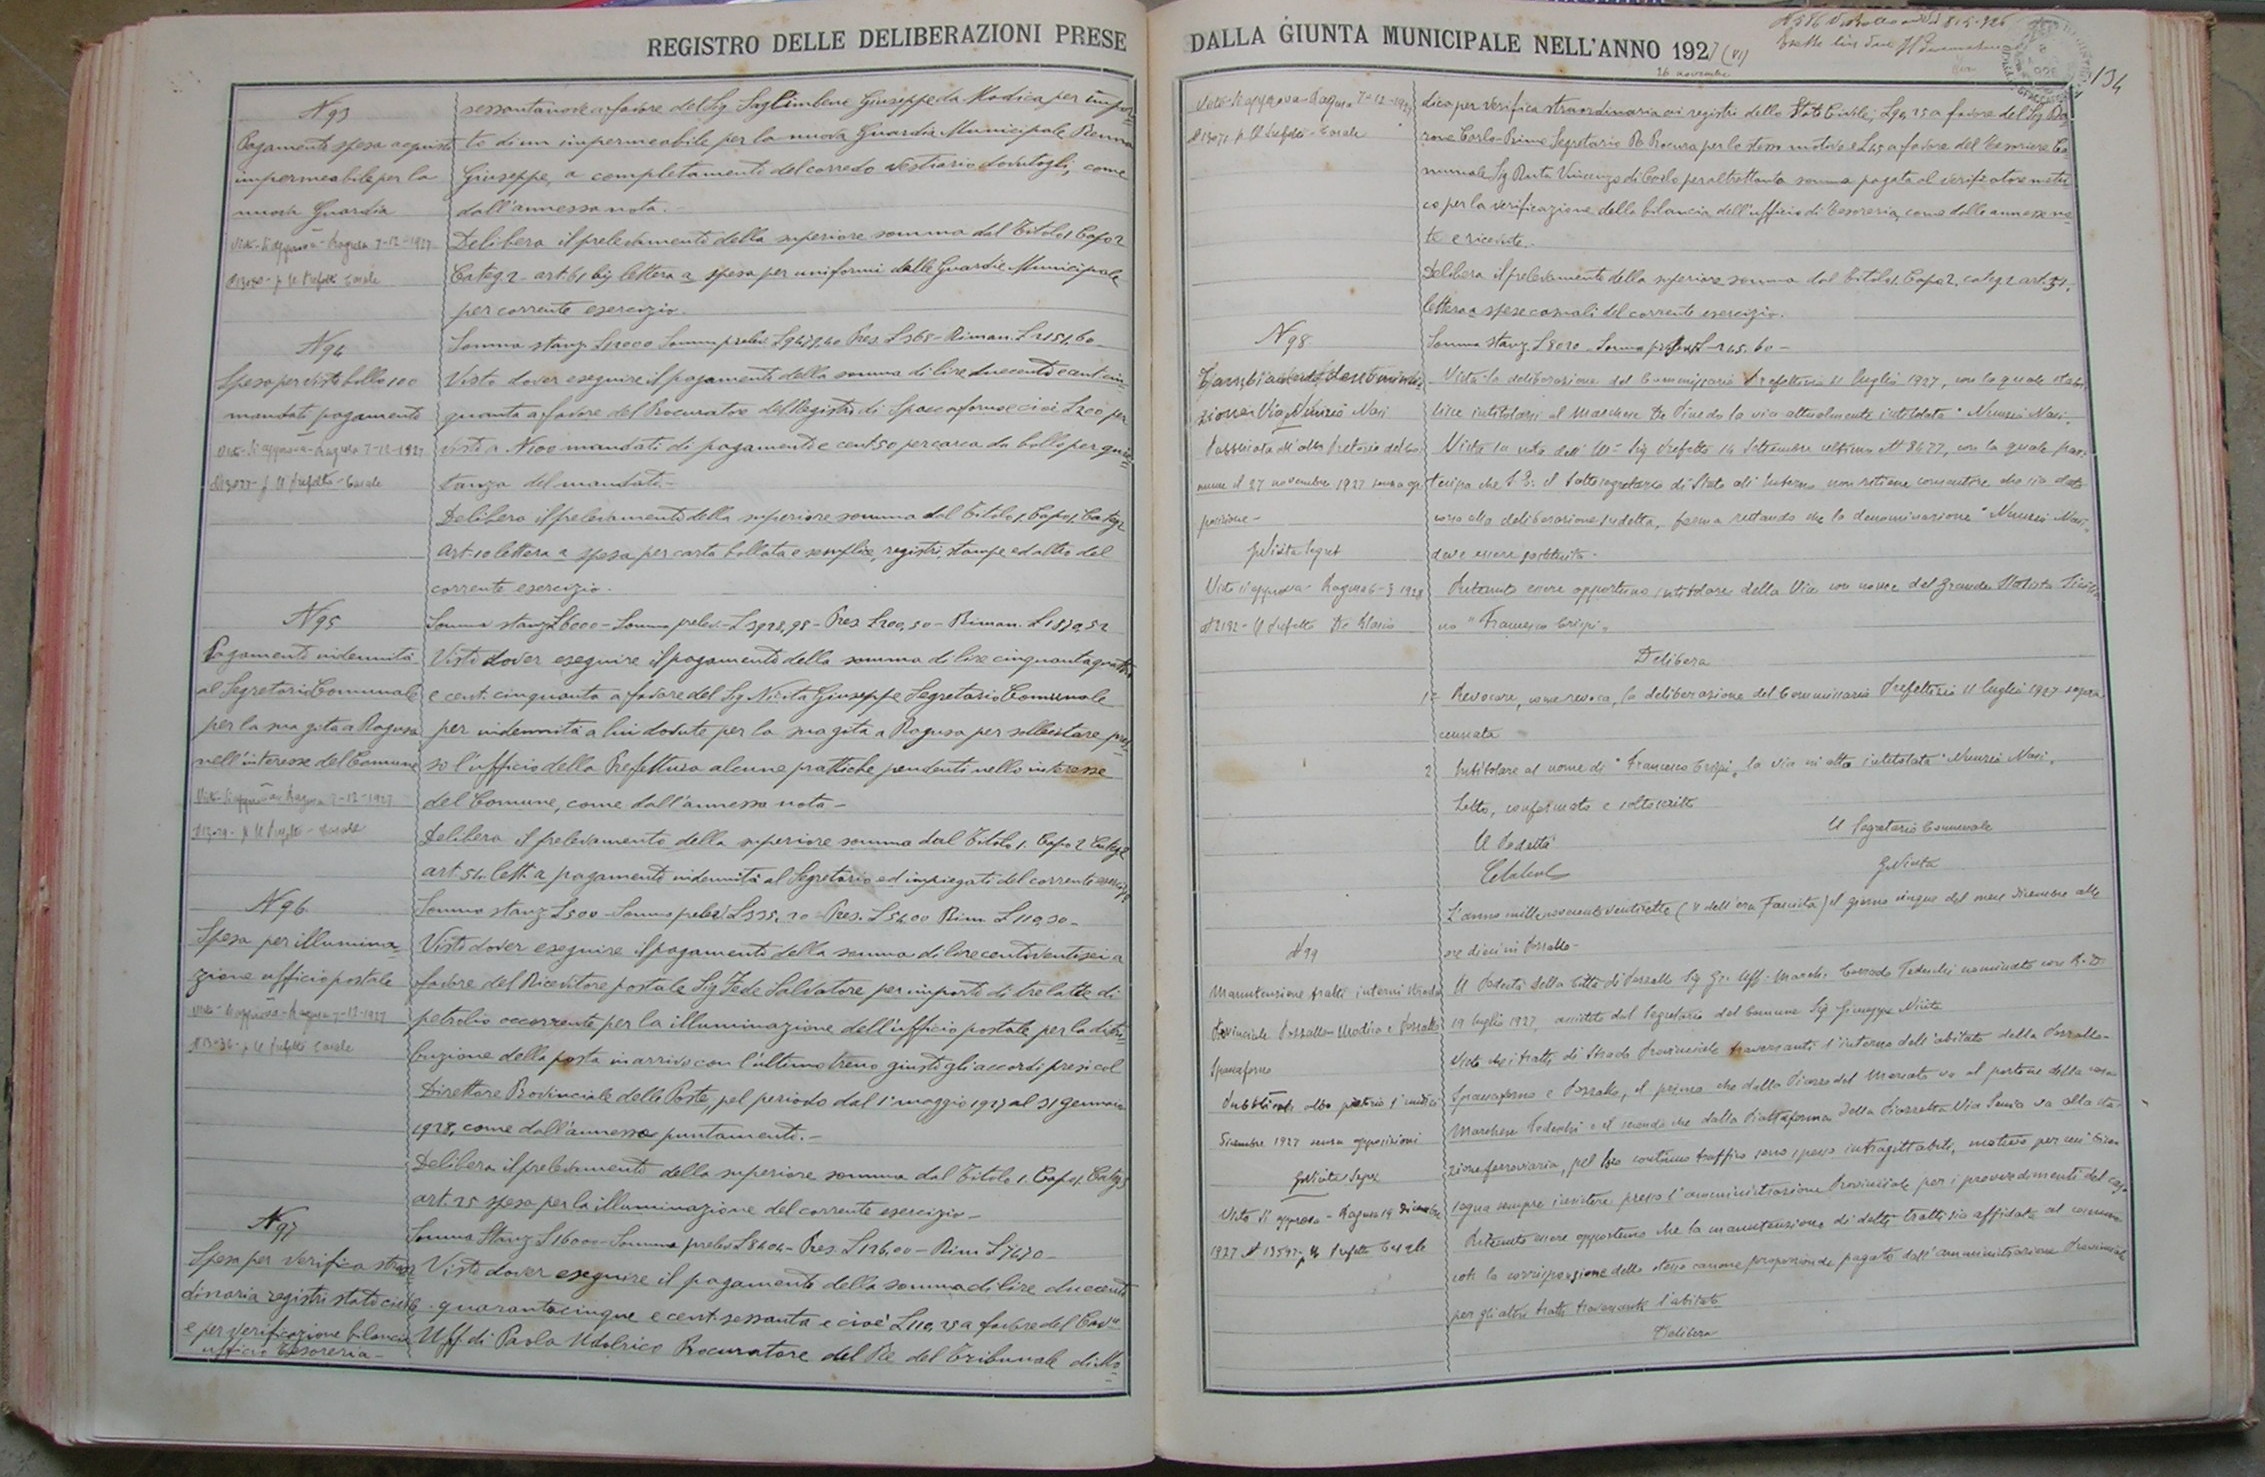 REGISTRO DELLE DELIBERAZIONI PRESE
N 93
Pagamento spesa acquisto
impermeabile per la
nuova Guardia
Visto-Si approva-Ragusa 7-12-1927
p. Il Prefetto Casale
sessantanove a favore del Sig. Saglimbene Giuseppe da Modica per impor-
to di un impermeabile per la nuova Guardia Municipale Renna
Giuseppe, a completamento del corredo vestiario dovutogli, come
dall'annessa nota.-
Delibera il prelevamento della superiore somma dal Titolo 1 Capo 2
Categ. 2 - art. 61 bis lettera a spesa per uniformi delle Guardie Municipale
per corrente esercizio.
Somma stanz L 12000 Somma prelev. Pres. L 369 - Riman.
N 94
Spesa per visto bollo 100
mandati pagamento
Visto-Si approva-Ragusa 7-12-1927
p. Il Prefetto-Casale
Visto dover eseguire il pagamento della somma di lire duecento e cent. cin-
quanta a favore del Procuratore del Registro di Spaccaforno e cioè L 200 per
visto a N 100 mandati di pagamento e cent. 50 per carta da bollo per quie-
tanza del mandato.-
Delibera il prelevamento della superiore somma dal Titolo 1. Capo 1. Categ 2
Art. 10 lettera a spesa per carta bollata e semplice, registri, stampe ed altro del
corrente esercizio.
N 95
Somma stanz L 6000 - Somma prelev.- L 3928,98 - Pres L 200,50 - Riman. L 1870,52
Pagamento indennità
al Segretario Comunale
per la sua gita a Ragusa
nell'interesse del Comune
Visto-Si approva-Ragusa 7-12-1927
p. Il Prefetto - Casale
Visto dover eseguire il pagamento della somma di lire cinquantaquattro
e cent. cinquanta a favore del Sig. Nicita Giuseppe Segretario Comunale
per indennità a lui dovute per la sua gita a Ragusa per sollecitare pres-
so l'ufficio della Prefettura alcune prattiche pendenti nello interesse
del Comune, come dall'annessa nota -
Delibera il prelevamento della superiore somma dal Titolo 1. Capo 2 Categ 2
art. 54 lett. a pagamento indennità al Segretario ed impiegati del corrente esercizio
N 96
Somma stanz L 500 - Somma prelev. - Pres. L 54,00 Rim. L 110,30 -
Spesa per illumina-
zione ufficio postale
Visto-Si approva-Ragusa 7-12-1927
p. Il Prefetto Casale
Visto dover eseguire il pagamento della somma di lire centoventisei a
favore del Ricevitore postale Sig Fede Salvatore per importo di tre latte di
petrolio occorrente per la illuminazione dell'ufficio postale per la distri-
buzione della posta in arrivo con l'ultimo treno giusto gli accordi presi col
Direttore Provinciale delle Poste, pel periodo dal 1° maggio 1927 al 31 Gennaio
1928, come dall'annesso puntamento.-
Delibera il prelevamento della superiore somma dal Titolo 1. Capo 1. Categ 3
art. 25 spesa per la illuminazione del corrente esercizio -
N 97
Somma Stanz L 16000 - Somma prelev L 8404 - Pres. L 126,00 - Rim L 7470 -
Spesa per verifica straor
dinaria registri stato civile
e per verificazione bilancia
ufficio Tesoreria -
Visto dover eseguire il pagamento della somma di lire duecento
quarantacinque e cent. sessanta e cioè L 110,25 a favore del Cav.
Uff. di Paola Udalrico Procuratore del Re del Tribunale di Mo-
DALLA GIUNTA MUNICIPALE NELL'ANNO 1927 (VI)
26 novembre
134
Visto-Si approva-Ragusa 7-12-1927
p. Il Prefetto-Casale
dica per verifica straordinaria ai registri dello Stato Civile; L 90,25 a favore del Sig Ba-
rone Carlo-Primo Segretario R. Procura per lo stesso motivo e L 45 a favore del Tesoriere Co-
munale Sig Ruta Vincenzo di Carlo per altrettanta somma pagata al verificatore metri
co per la verificazione della bilancia dell'ufficio di Tesoreria, come dalle annesse no-
te e ricevute.
Delibera il prelevamento della superiore somma dal titolo 1. Capo 2. categ 2 art. 54.
lettera a spese casuali del corrente esercizio.
N 98
Somma stanz. - Somma - L 245.60 -
Cambiamento denomina-
zione Via Nunzio Nasi
Pubblicata all'albo Pretorio del Co-
mune il 27 novembre 1927 senza op-
posizione -
GNicita Segret
Visto si approva - Ragusa 6-3 1928
N 2192 - Il Prefetto De Blasio
Vista la deliberazione del Commissario Prefettizio 11 luglio 1927, con la quale stabi-
lisce intitolarsi al Marchese De Pinedo la via attualmente intitolata "Nunzio Nasi"
Vista la nota dell'Ill.mo Sig Prefetto 14 Settembre ultimo N 8477, con la quale par-
tecipa che S.E. il Sottosegretario di Stato all'Interno non ritiene consentire che sia dato
corso alla deliberazione sudetta, ferma restando che la denominazione "Nunzio Nasi"
deve essere sostituita -
Ritenuto essere opportuno intitolare della Via con nome del Grande Statista Sicilia-
no "Francesco Crispi"
Delibera
1° Revocare, come revoca, la deliberazione del Commissario Prefettizio 11 luglio 1927 sopra
cennata
2 Intitolare al nome di "Francesco Crispi" la via in atto intitolata "Nunzio Nasi"
Letto, confermato e sottoscritto
Il Podestà
Il Segretario Comunale
GNicita
L'anno millenovecentoventisette (V dell'era Fascista) il giorno cinque del mese Dicembre alle
ore dieci in Pozzallo -
N 99
Manutenzione tratti interni Strada
Provinciale Pozzallo-Modica e Pozzallo
Spaccaforno
Pubblicata albo pretorio 1 undici
Dicembre 1927 senza opposizioni
GNicita Segr
Visto si approva - Ragusa 19 Dicembre
1927 N 13597 - p. Il Prefetto Casale
Il Podestà della Città di Pozzallo Sig Gr. Uff. March. Corrado Tedeschi nominato con R. D.
19 luglio 1927, assistito dal Segretario del Comune Sig. Giuseppe Nicita
Visto che i tratti di Strada Provinciale traversanti l'interno dell'abitato della Pozzallo-
Spaccaforno e Pozzallo, il primo che dalla Piazza del Mercato va al portone della casa
Marchese Tedeschi e il secondo che dalla Piattaforma della Piazzetta Via Senia va alla sta-
zione ferroviaria, pel loro continuo traffico sono spesso intragittabili, motivo per cui biso-
gna sempre insistere presso l'amministrazione Provinciale per i provvedimenti del caso
Ritenuto essere opportuno che la manutenzione di detti tratti sia affidata al comune
con la corrisponsione dello stesso canone proporzionale pagato dall'amministrazione Provinciale
per gli altri tratti traversanti l'abitato
Delibera